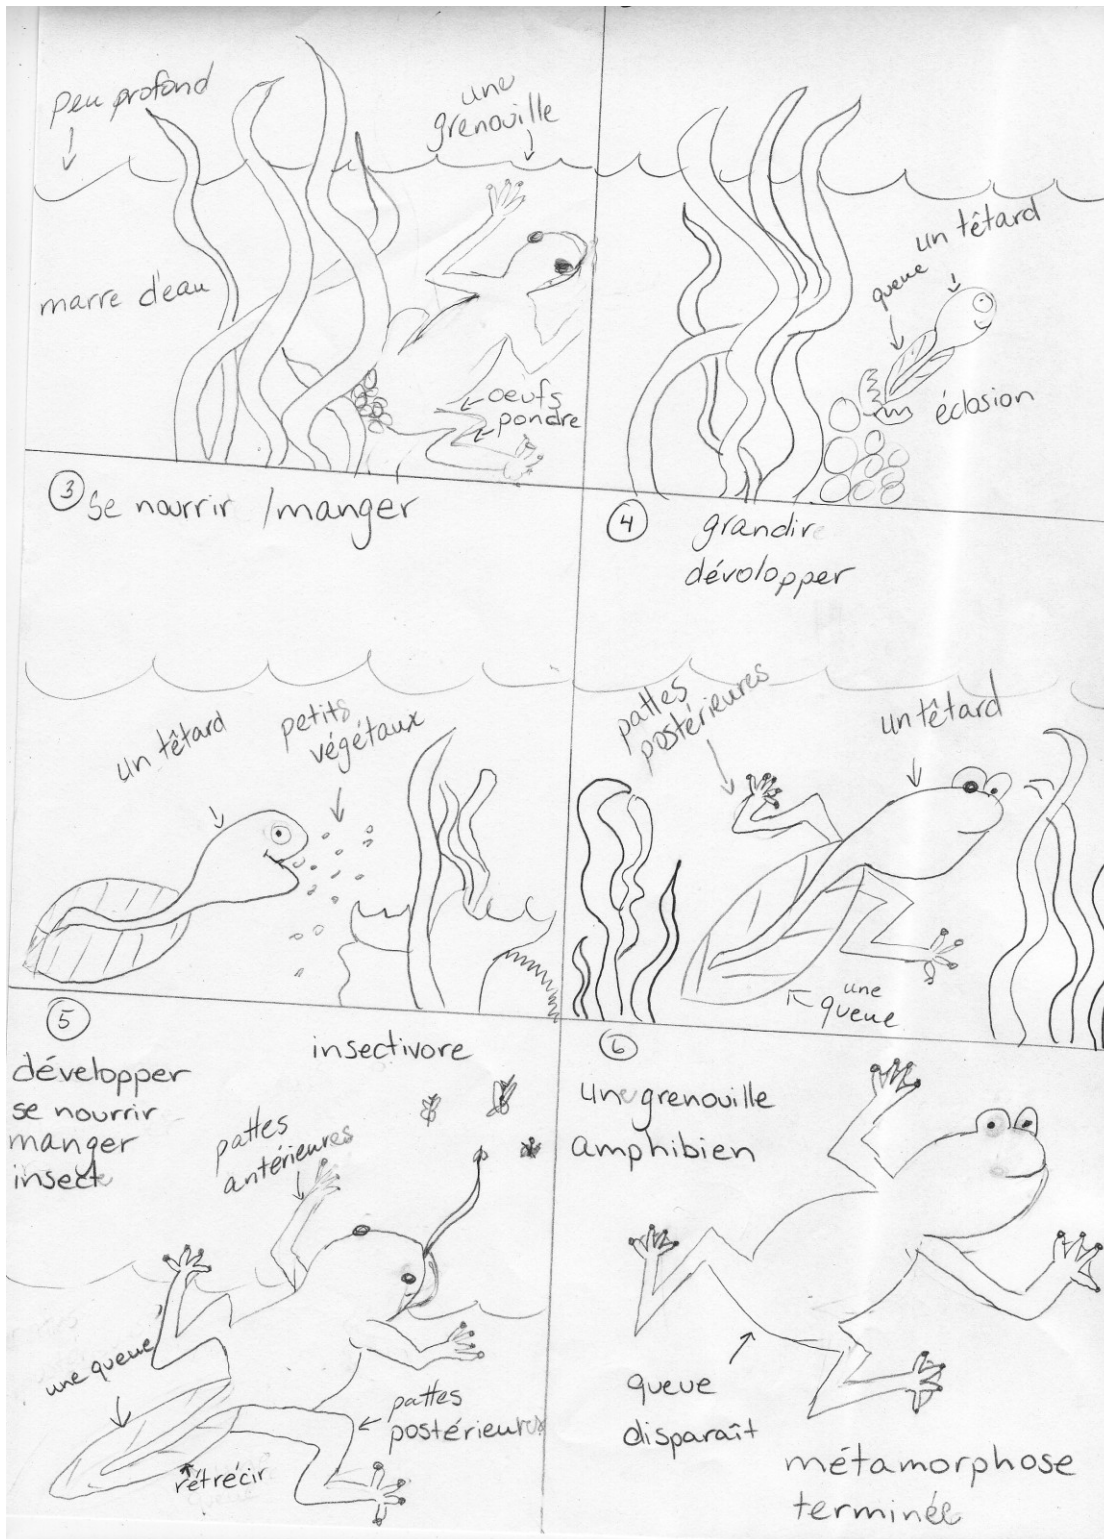 peu profond
une
grenouille
marre d'eau
oeufs
pondre
un têtard
queue
éclosion
③ se nourrir / manger
un têtard
petits
végétaux
④ grandir
dévolopper
pattes
postérieures
un têtard
une
queue
⑤
développer
se nourrir
manger
insecte
insectivore
pattes
antérieures
une queue
pattes
postérieures
rétrécir
⑥
une grenouille
amphibien
queue
disparaît
métamorphose
terminée